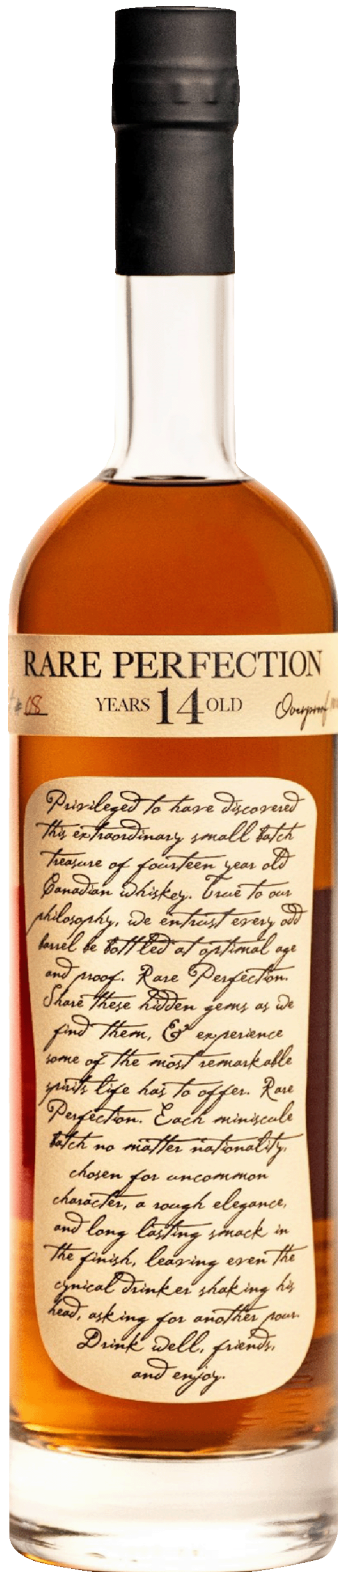 RARE PERFECTION
# 08 YEARS 14 OLD Overproof
Privileged to have discovered
this extraordinary small batch
treasure of fourteen year old
Canadian whiskey. True to our
philosophy, we entrust every odd
barrel be bottled at optimal age
and proof. Rare Perfection.
Share these hidden gems as we
find them, & experience
some of the most remarkable
spirits life has to offer. Rare
Perfection. Each miniscule
batch no matter nationality,
chosen for uncommon
character, a rough elegance,
and long lasting smack in
the finish, leaving even the
cynical drinker shaking his
head, asking for another pour.
Drink well, friends,
and enjoy.